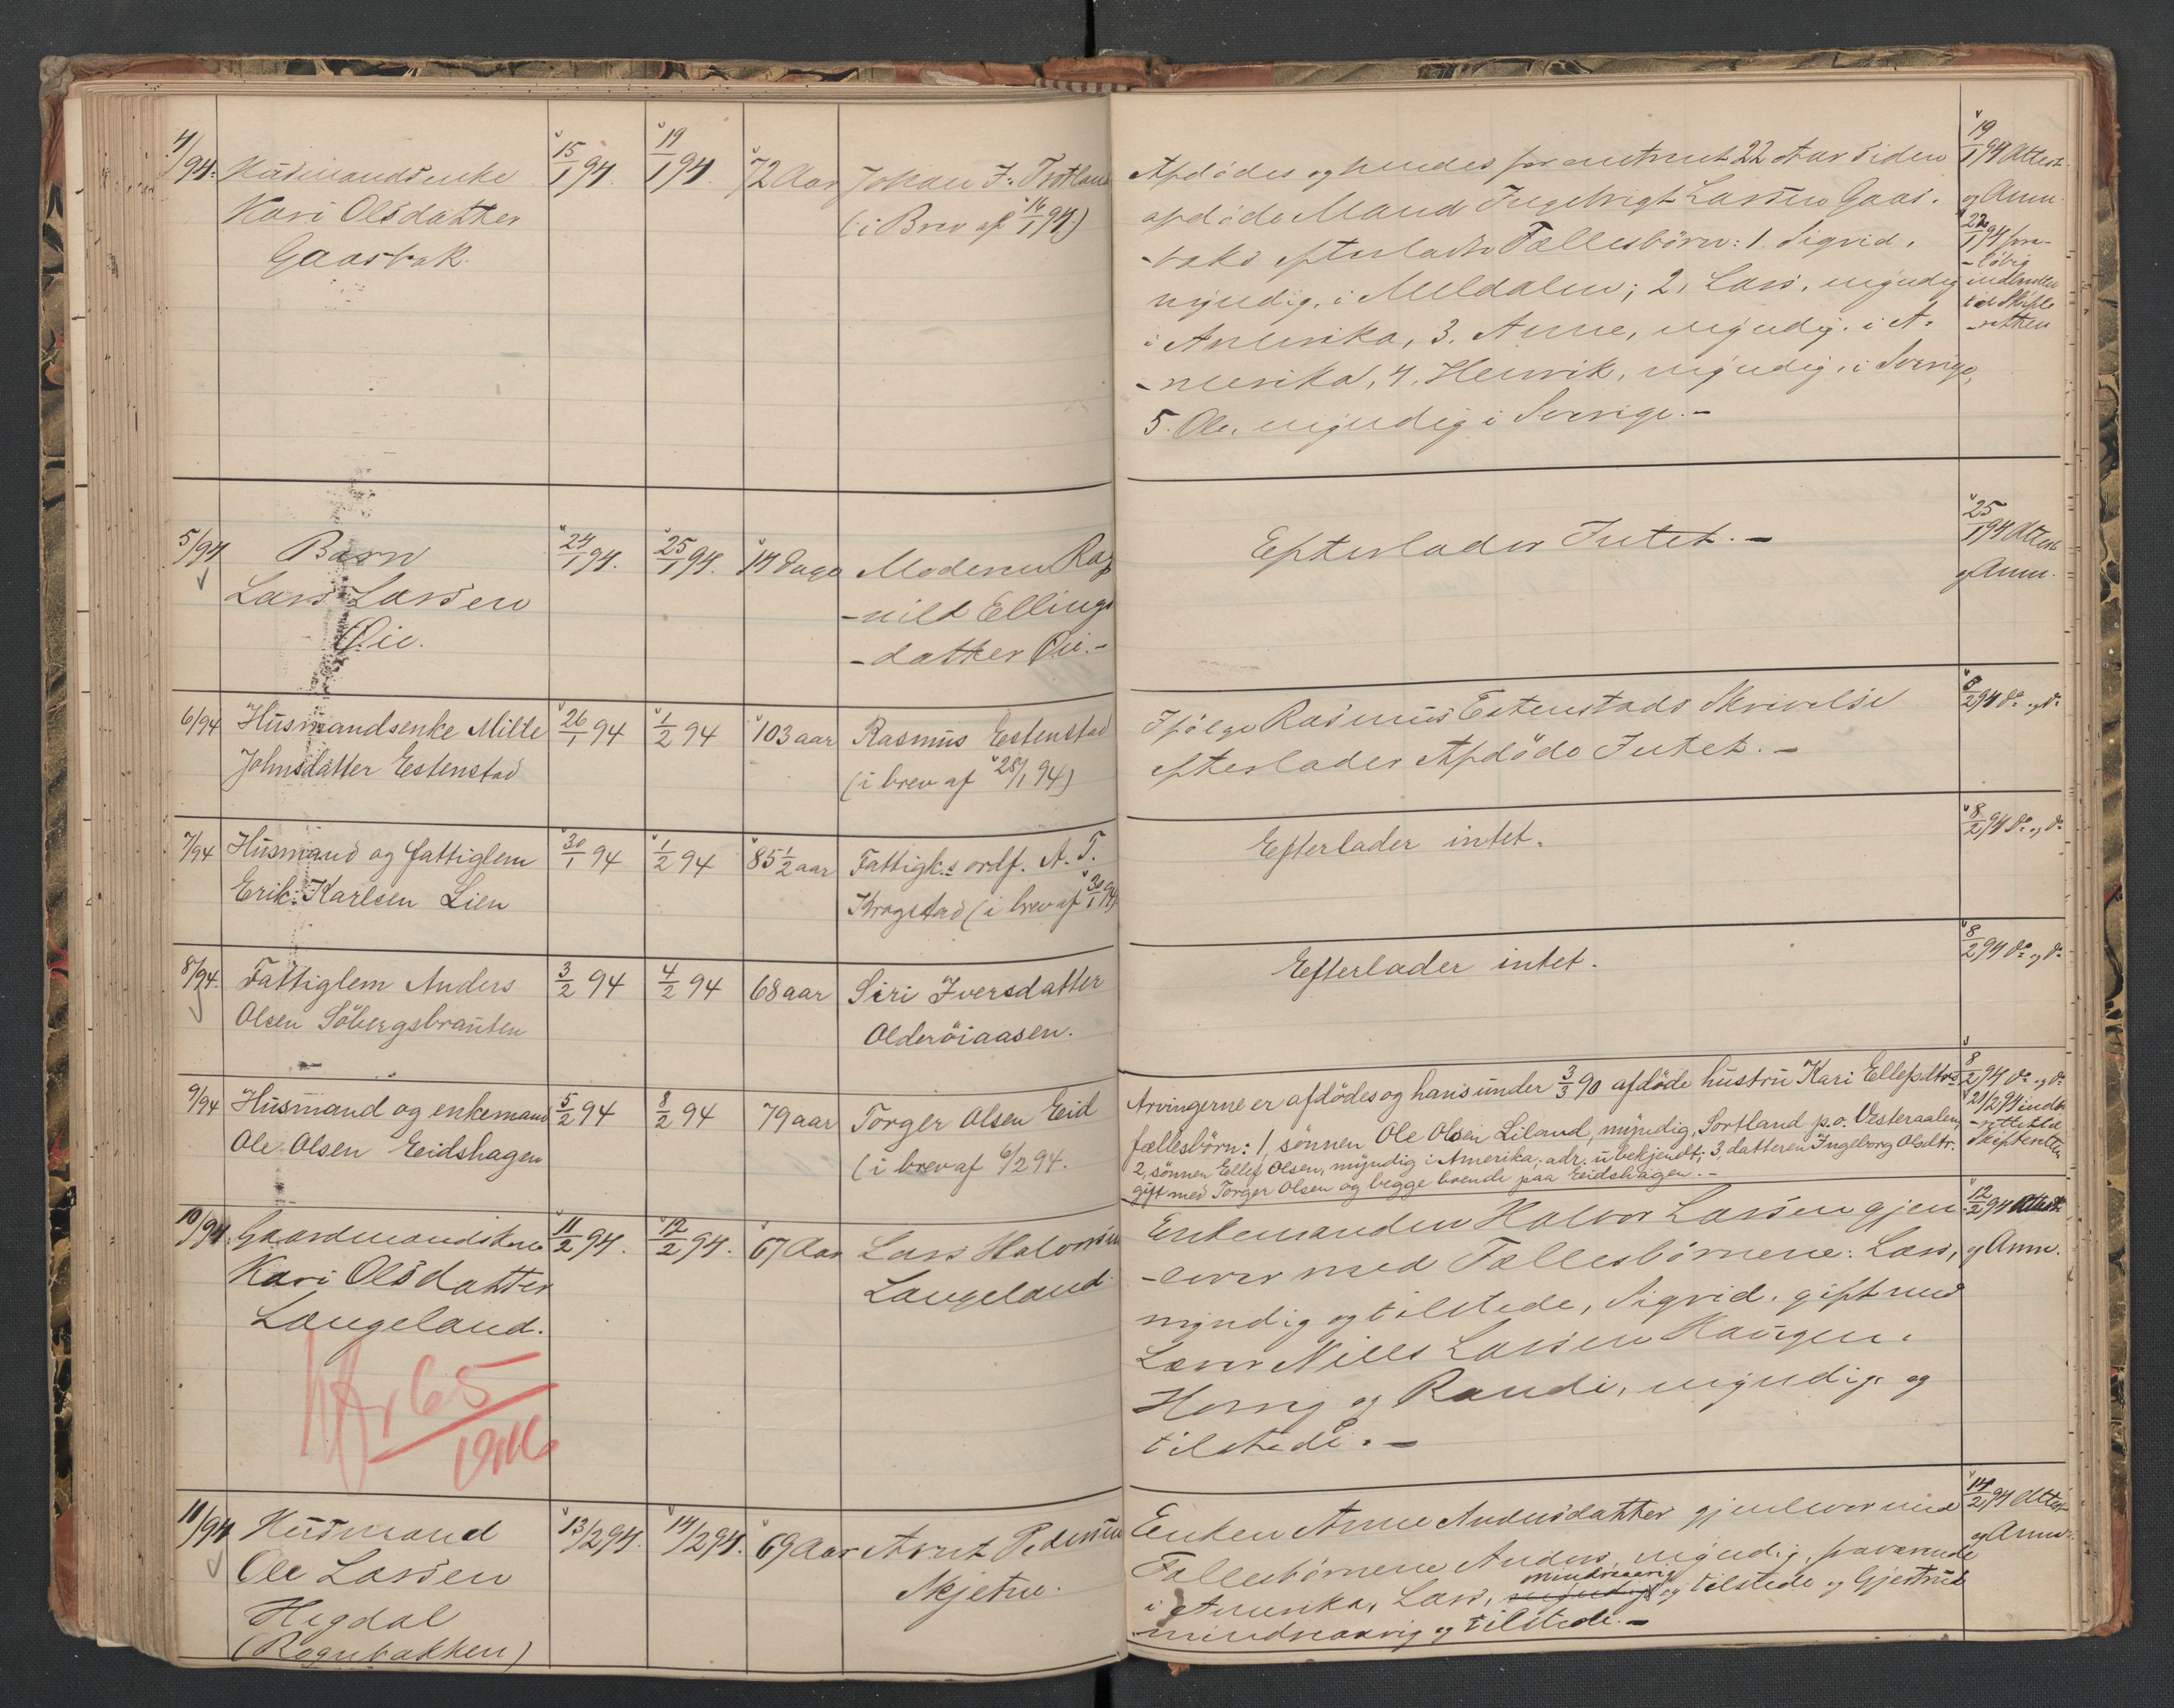 4/94. Husmandsenke 15/1 94. 19/1 94. 72 Aar Johan J. Trotland
Kari Olsdatter (i Brev af 16/1 94.)
Gaasbak.
Afdødes og hendes for omtrent 22 Aar siden
afdøde Mand Ingebrigt Larsen Gaas-
-baks efterladte Fællesbörn: 1. Sigrid,
myndig, i Meldalen; 2, Lars, myndig
i Amerika, 3. Anne, myndig, i A-
-merika, 4. Henrik, myndig, i Sverige,
5. Ole, myndig i Sverige. -
19/1 94 Attest
og Anm.
22/1 94 fore-
-löbig
indberettet
til Skifte
-retten
5/94 Barn 24/1 94. 25/1 94. 14 Dage Moderen Rag
Lars Larsen -nild Ellings
Øie. -datter Øie. -
Efterlader Intet. -
25/1 94 Attest
og Anm.
6/94 Husmandsenke Mille 26/1 94 1/2 94 103 aar Rasmus Estenstad
Johnsdatter Estenstad (i brev af 28/1 94)
Ifölge Rasmus Estenstads Skrivelse
efterlader Afdöde Intet. -
8/2 94 do. og do.
7/94 Husmand og fattiglem 30/1 94 1/2 94 85 1/2 aar Fattigk.s ordf. A. T.
Erik Karlsen Lien Krogstad (i brev af 30/1 94)
Efterlader intet.
8/2 94 do. og do.
8/94. Fattiglem Anders 3/2 94 4/2 94 68 aar Siri Iversdatter
Olsen Söbergsbrauten Olderöiaasen.
Efterlader intet.
8/2 94 do. og do.
9/94 Husmand og enkemand 5/2 94 8/2 94 79 aar Torger Olsen Eid
Ole Olsen Eidshagen (i brev af 6/2 94.
Arvingerne er afdödes og hans under 3/3 90 afdöde hustru Kari Ellefsdtrs
fællesbörn: 1, sönnen Ole Olsen Liland, myndig, Sortland p.o. Vesteraalen,
2, sönnen Ellef Olsen, myndig i Amerika, adr. ubekjendt; 3, datteren Ingeborg Olsdtr.
gift med Torger Olsen og begge boende paa Eidshagen. -
8/2 94 do. og do.
21/2 94 indbe
-rettet til
Skifteretten
10/94. Gaardmandskone 11/2 94. 12/2 94. 67 Aar Lars Halvorsen
Kari Olsdatter Langeland.
Langeland.
65/1916
Enkemanden Halvor Larsen gjen-
-lever med Fællesbörnene: Lars,
myndig og tilstede, Sigrid, gift med
Lærer Nills Larsen Haugen,
Horrig og Randi, myndig og
tilstede. -
12/2 94 Attest.
og Anm.
11/94 Husmand 13/2 94. 14/2 94. 69 Aar Arnt Pedersen
Ole Larsen Skjetne.
Hegdal
(Rognbakken)
Enken Anne Andersdatter gjenlever med
Fællesbörnene Anders, myndig, fraværende
i Amerika, Lars, myndig mindreaarig og tilstede og Gjertrud
mindreaarig og tilstede. -
14/2 94 Attest
og Anm.